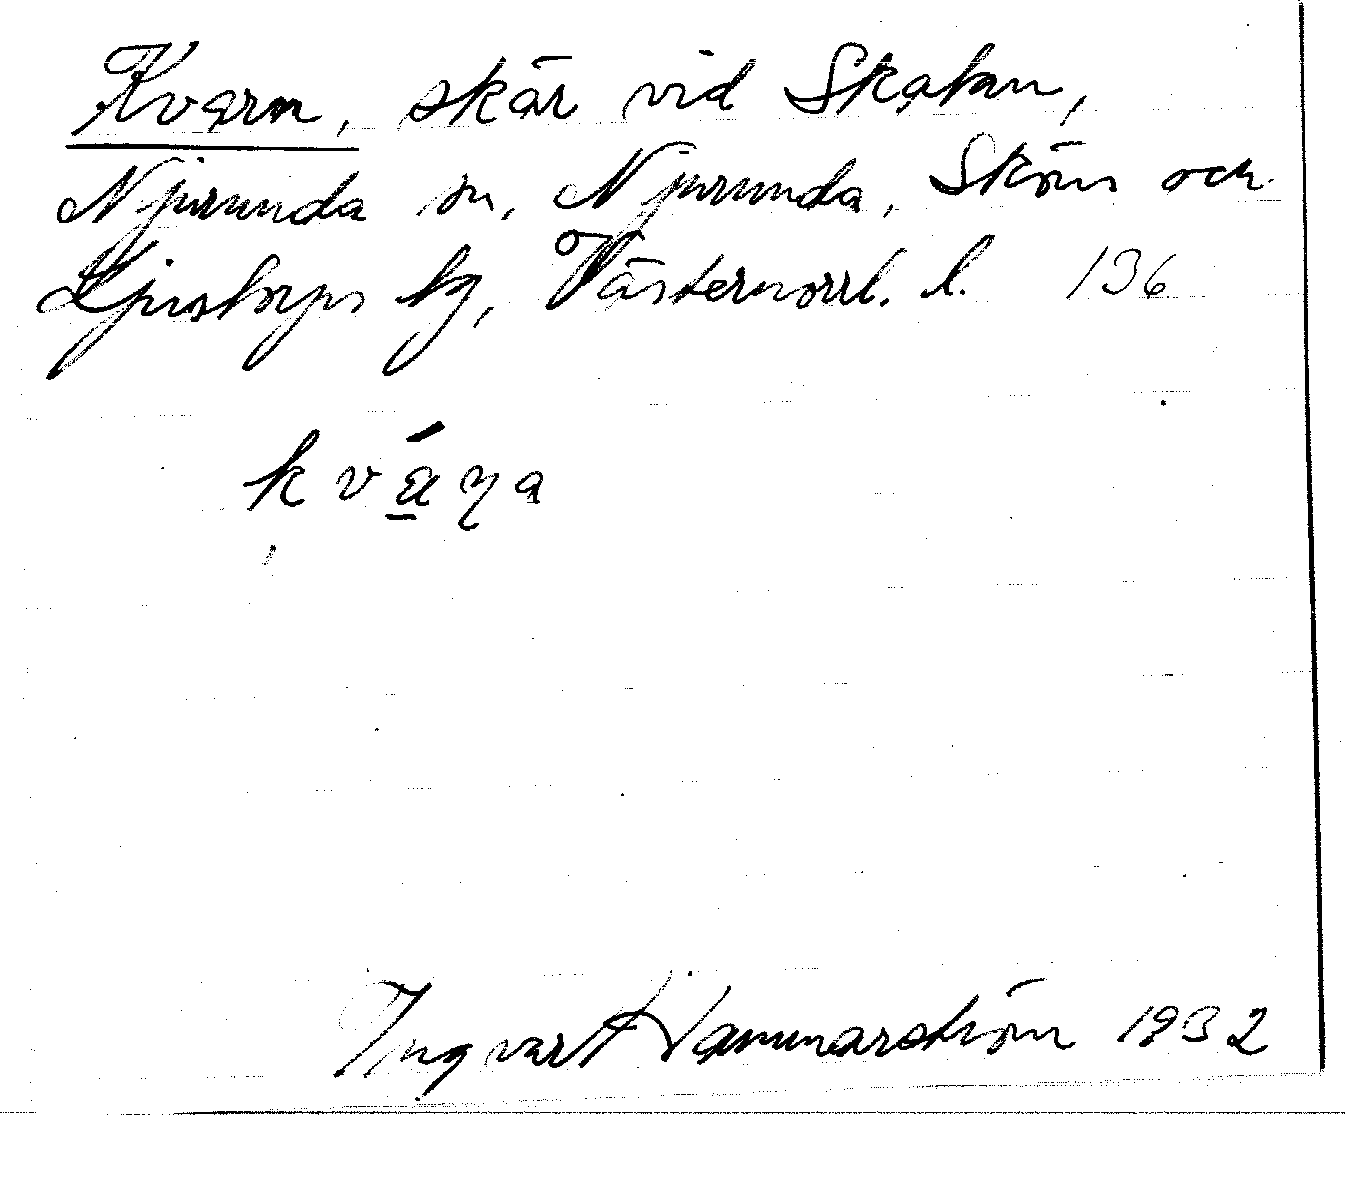 Kvarn, skär vid Skatan,
Njurunda sn, Njurunda, Sköns och
Ljustorps tg, Västernorrl. l. 136
kváɳa
Ingvart Hammarström 1932